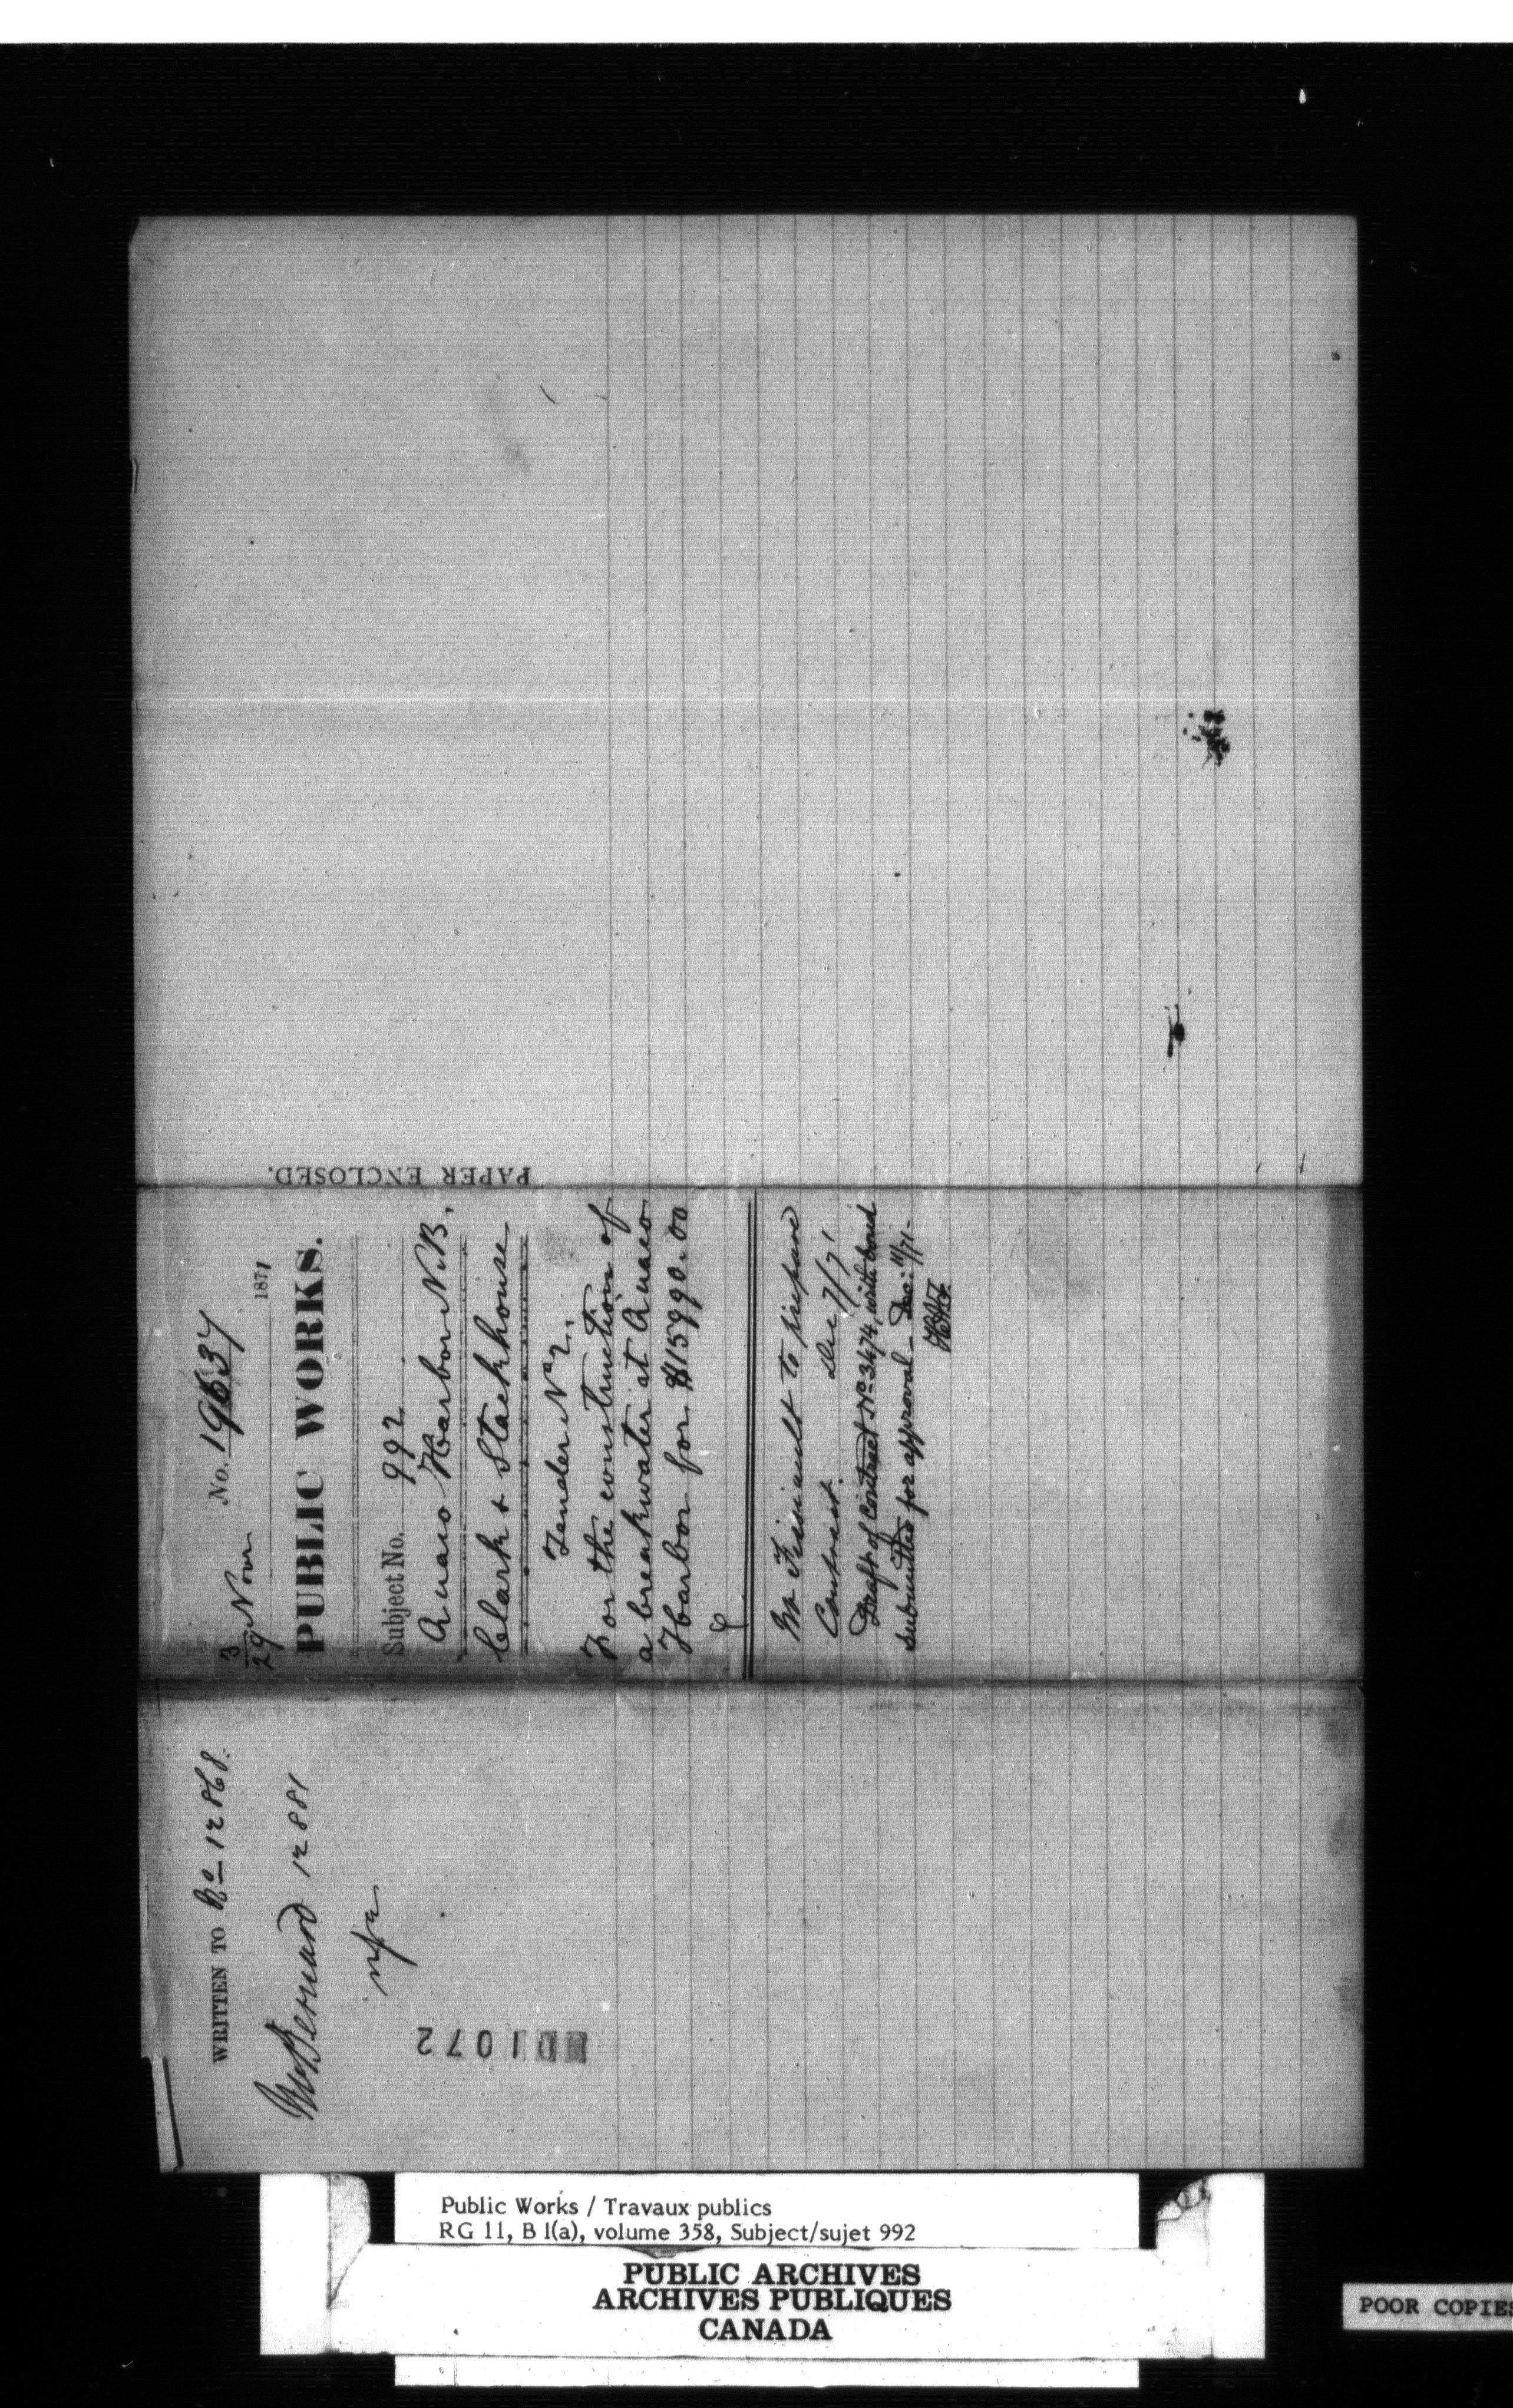 WRITTEN TO No 12868.
Mr Bernard 12881
nfa
1072
No. 19637
3
29 Novr 1871
PUBLIC WORKS.
Subject No. 992
Quaco Harbor N.B.
Clark & Stackhouse
Tender No 2.
For the construction of
a breakwater at Quaco
Harbor for $15990.00
Mr to prepare
Contract. Dec 7/71
Draft of Contract No 3474, with bond
submitted for approval - Dec: 11/71-
PAPER ENCLOSED.
Public Works / Travaux publics
RG 11, B 1(a), volume 358, Subject/sujet 992
PUBLIC ARCHIVES
ARCHIVES PUBLIQUES
CANADA
POOR COPIES